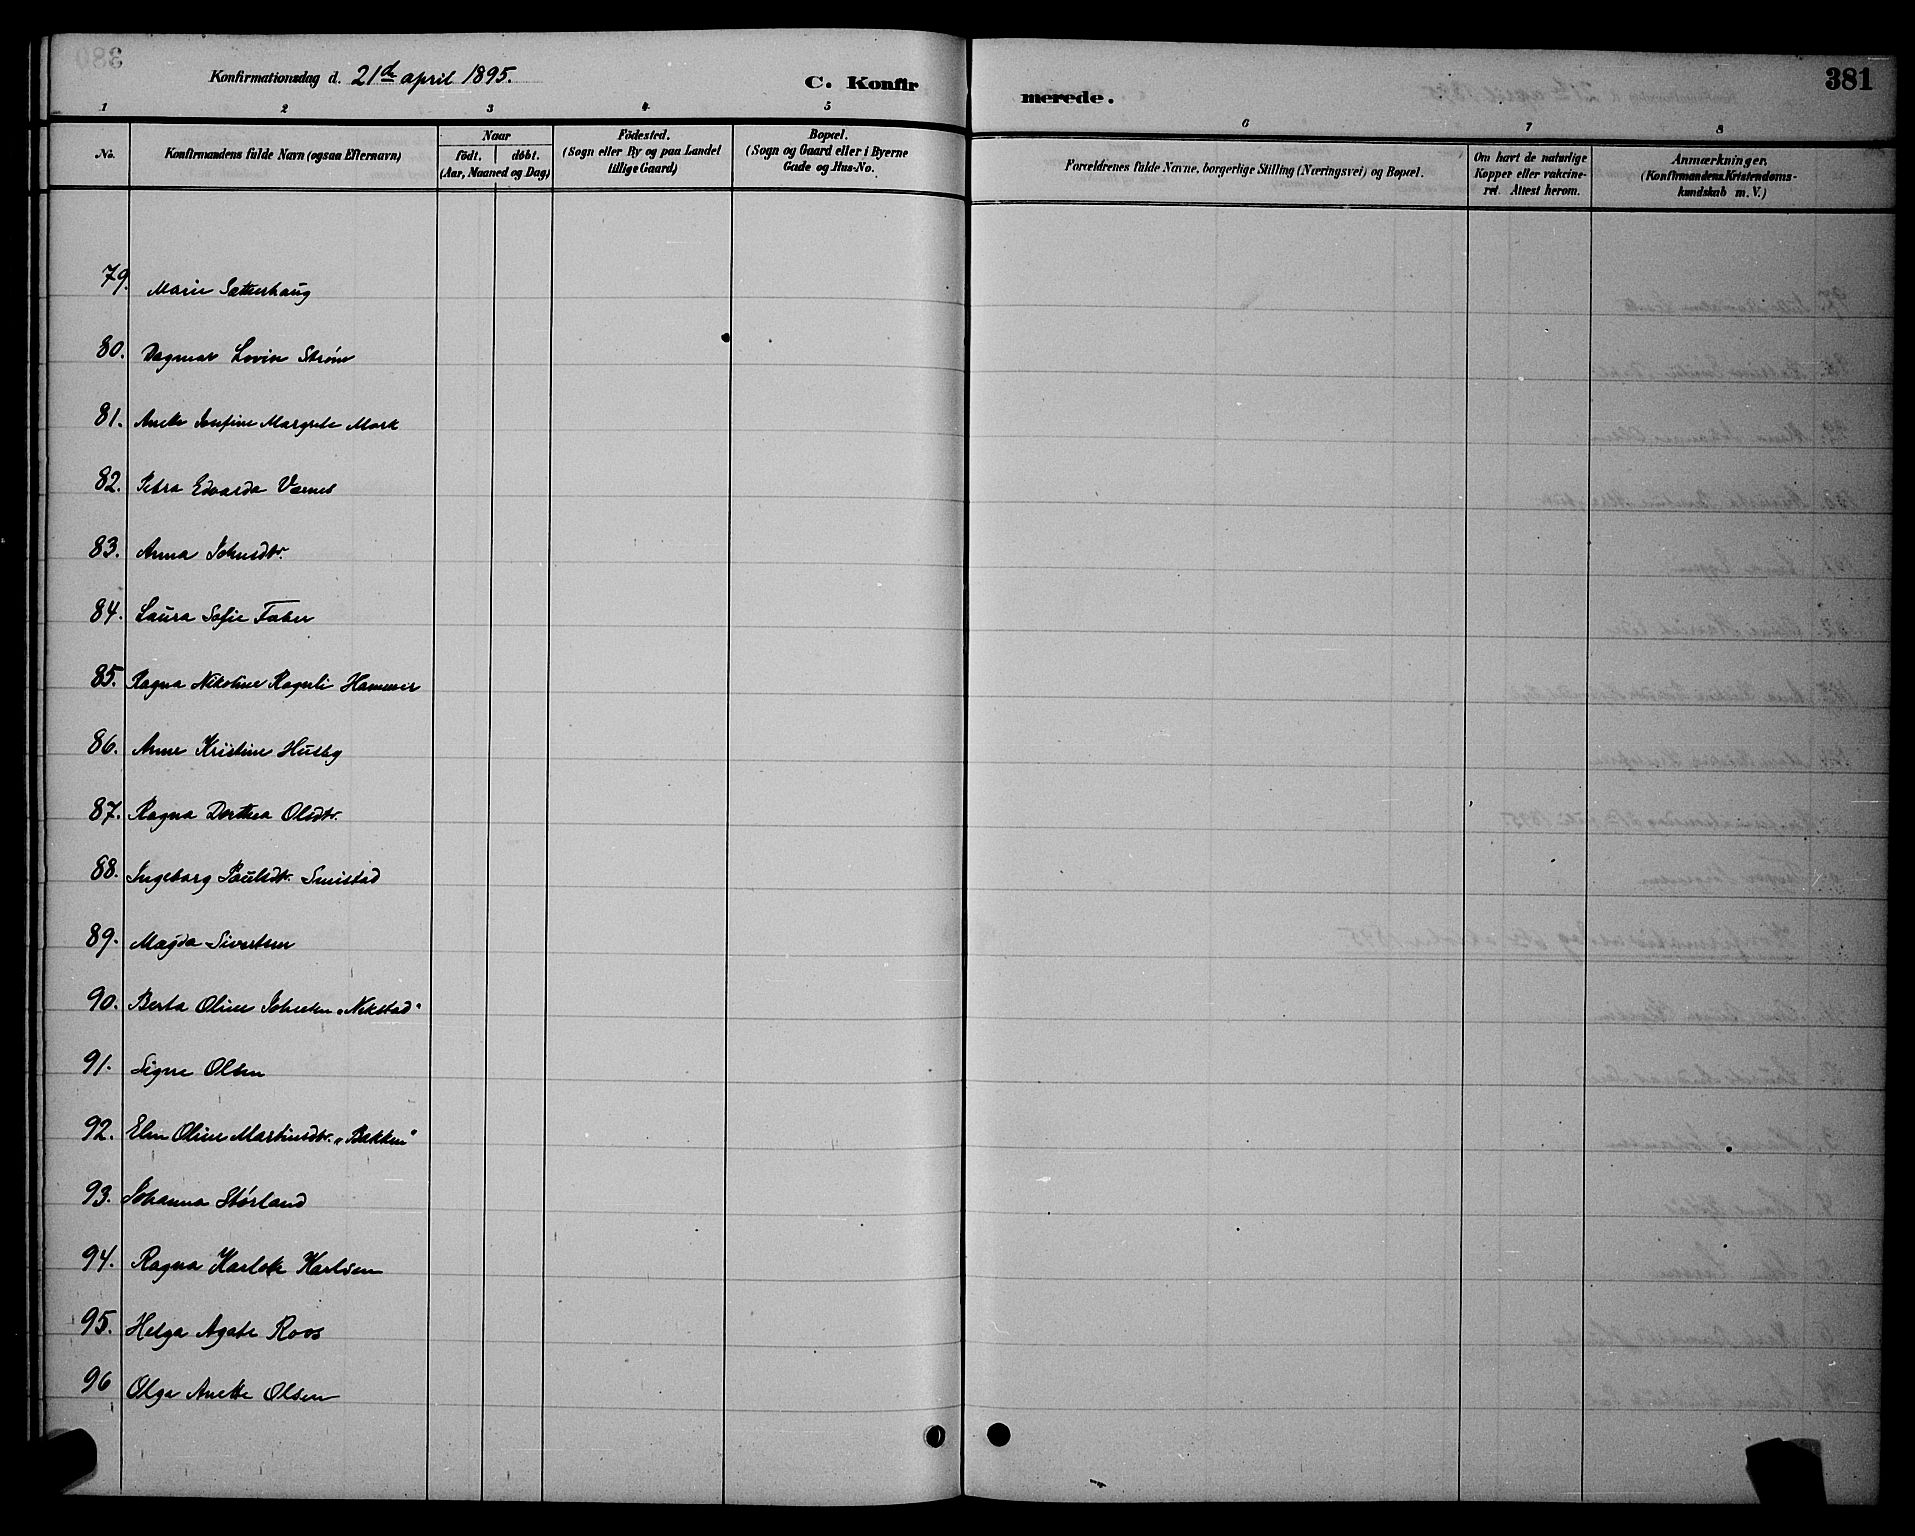 Konfirmationsdag d. 21de april 1895.
C. Konfir
merede.
381
1 2 3 4 5 6 7 8
No.
Konfirmandens fulde Navn (ogsaa Efternavn)
Naar
födt. döbt.
(Aar, Maaned og Dag)
Födested.
(Sogn eller By og paa Landet
tillige Gaard)
Bopæl.
(Sogn og Gaard eller i Byerne
Gade og Hus-No.
Forældrenes fulde Navne, borgerlige Stilling (Næringsvei) og Bopæl.
Om havt de naturlige
Kopper eller vakcine-
ret. Attest herom.
Anmærkninger,
(Konfirmandens Kristendoms-
kundskab m. V.)
79. Marie Sætterhaug
80. Dagmar Lovise Strøm
81. Anette Josefine Margrete Mork
82. Petra Edvarda Værnes
83. Anna Johnsdtr.
84. Laura Sofie Faber
85. Ragna Nikoline Hammer
86. Anne Kristine Husby
87. Ragna Dorthea Olsdtr.
88. Ingeborg Paulsdtr. Smistad
89. Magda Sivertsen
90. Berta Oline Johnsen "Nekstad"
91. Signe Olsen
92. Elen Oline Martinsdtr. "Bakken"
93. Johanna Størland
94. Ragna Karlotte Karlsen
95. Helga Agate Roos
96 Olga Anette Olsen